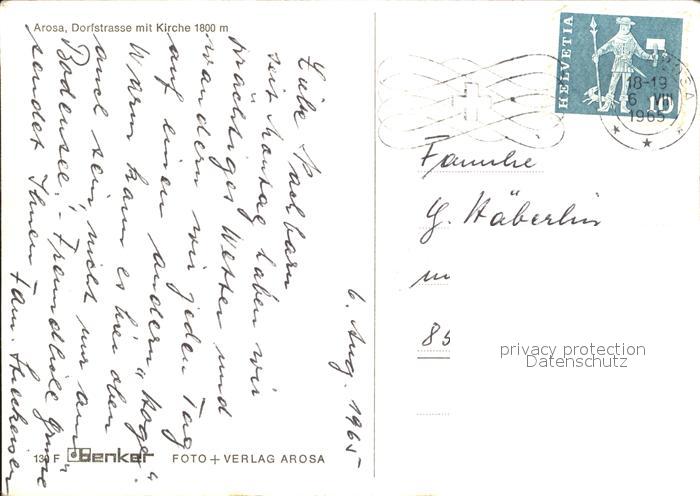 Arosa, Dorfstrasse mit Kirche 1800 m
6. Aug. 1965
Liebe Nachbarn
seit Montag haben wir
prächtiges Wetter und
wandern wir jeden Tag
auf einen andern "Hoger".
Warm kann es hier oben
auch sein, nicht nur am
Bodensee! Freundliche Grüsse
sendet Ihnen Fam.
130 F Benker FOTO + VERLAG AROSA
HELVETIA
10
AROSA
18-19
6. VIII
1965
Familie
G. Häberlin
85
privacy protection
Datenschutz